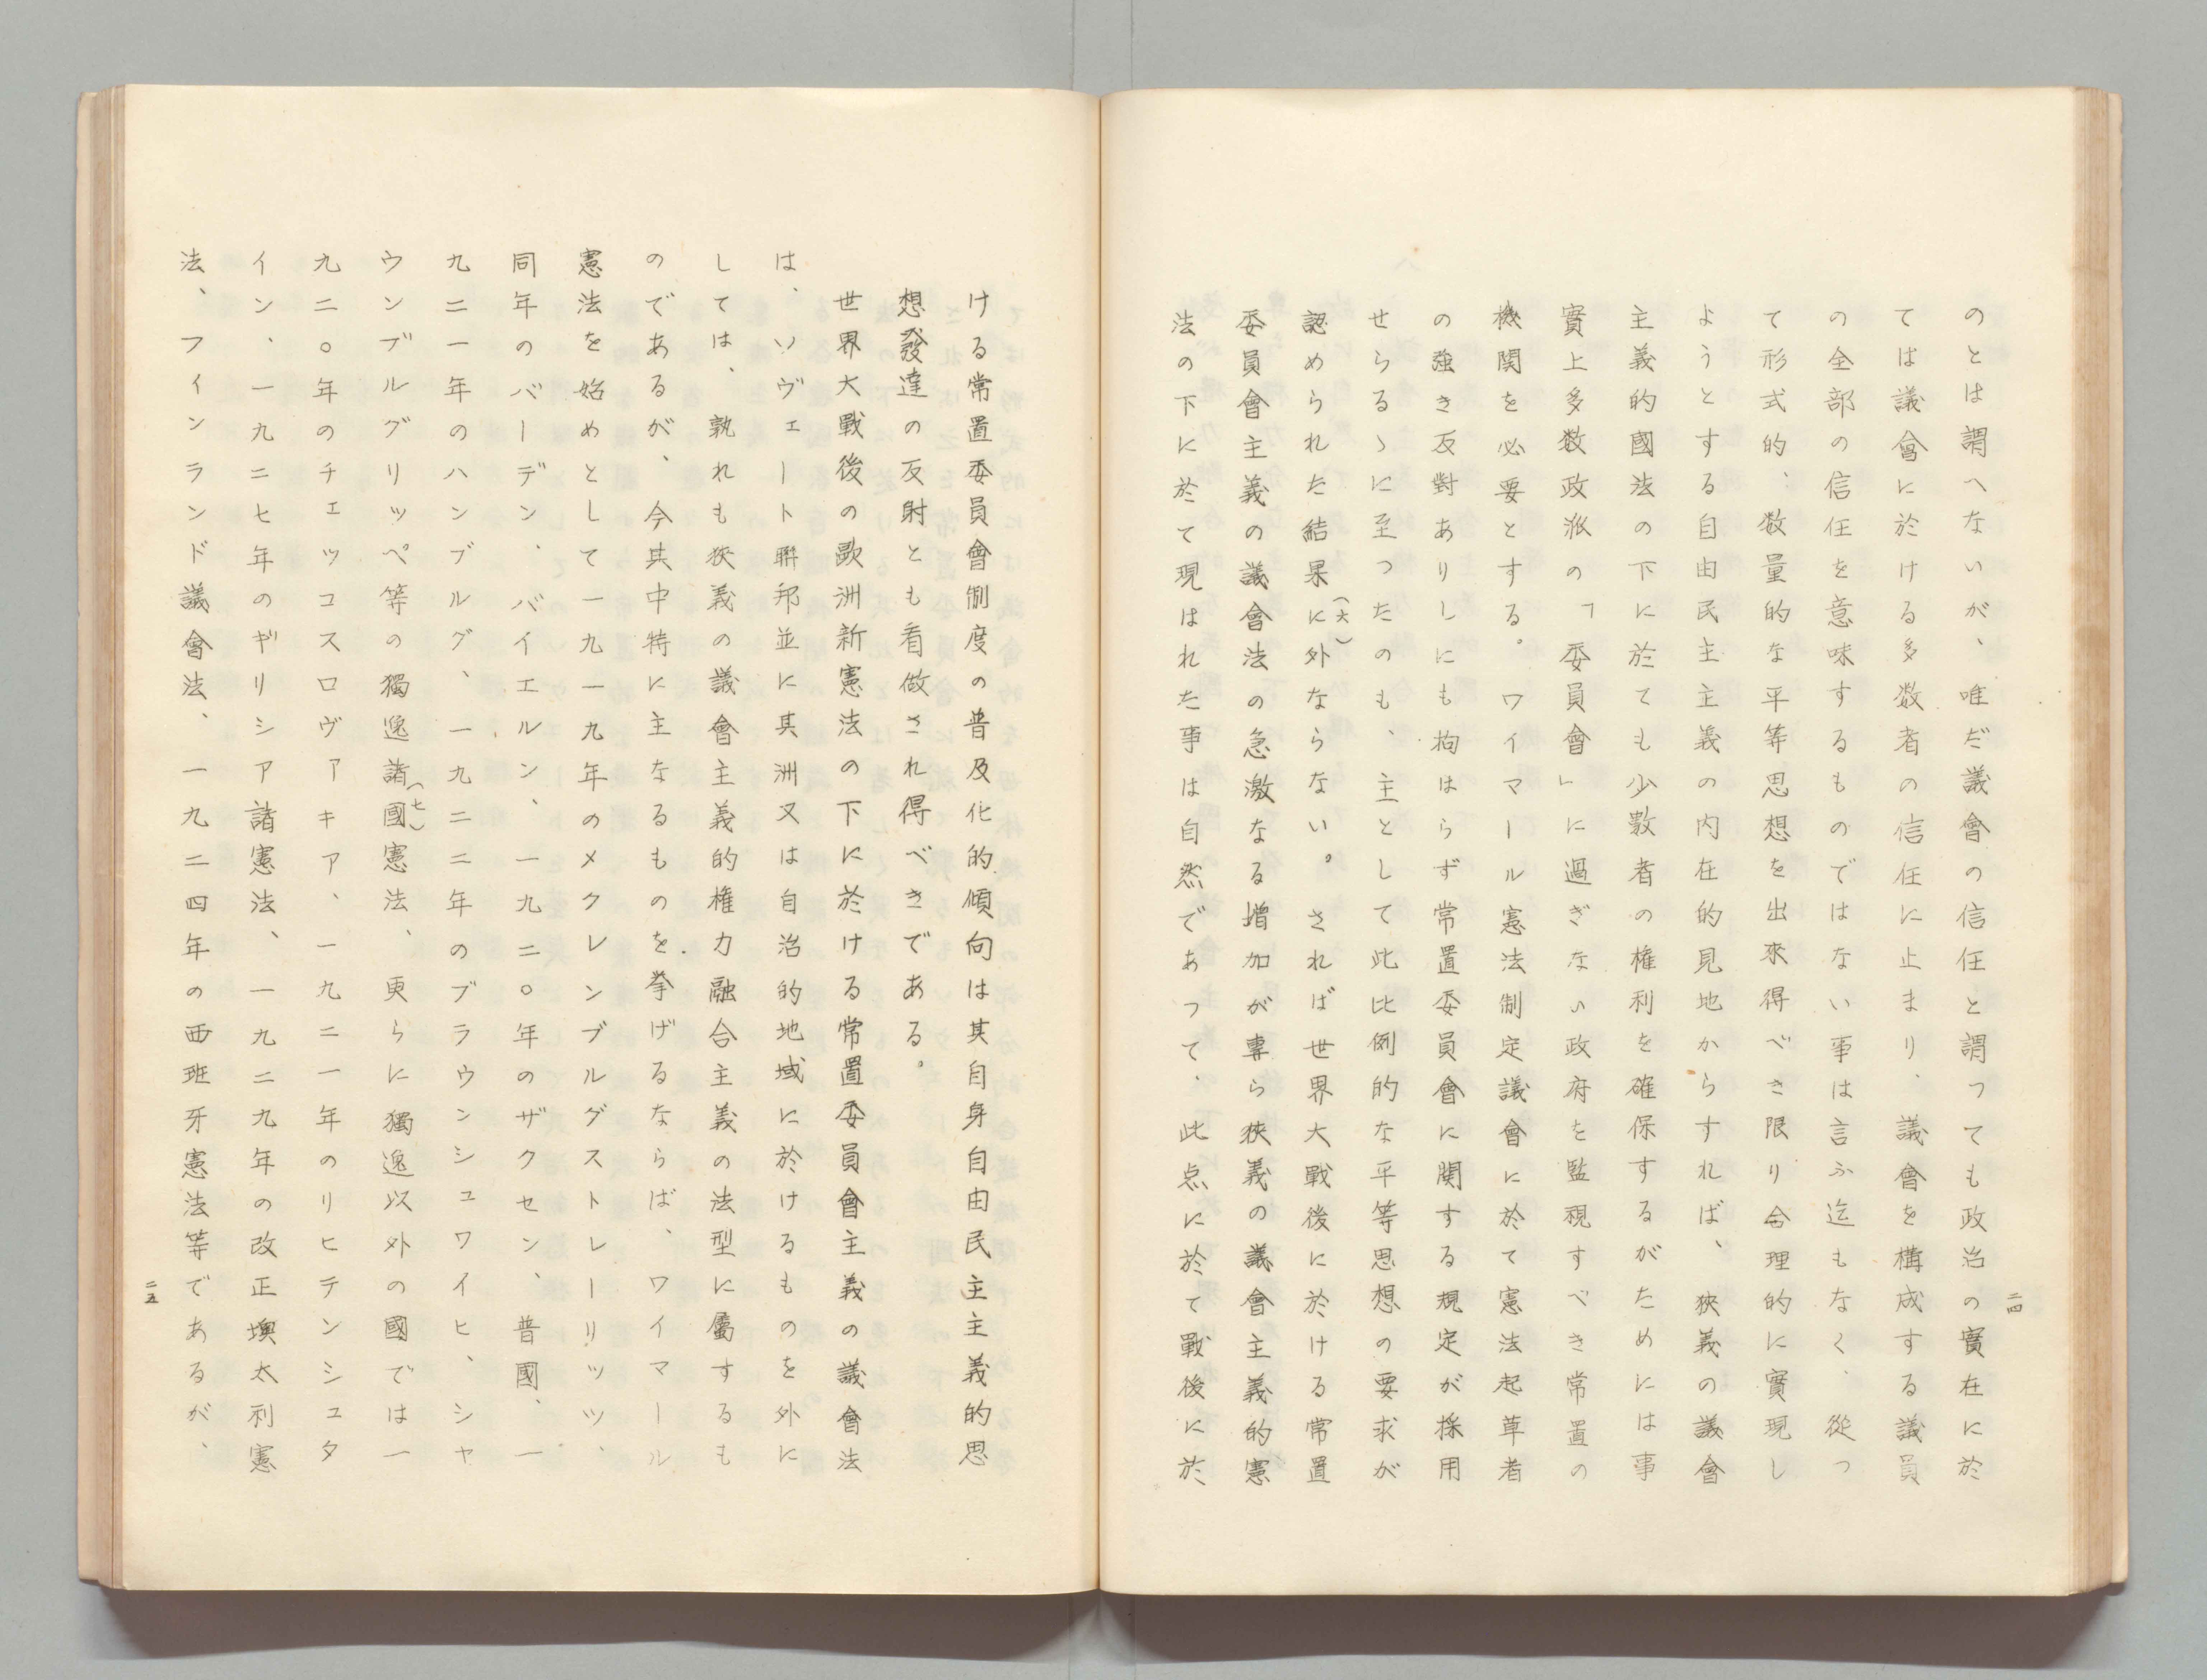 のとは謂へないが、唯だ議會の信任と謂つても政治の實在に於
ては議會に於ける多数者の信任に止まり、議會を構成する議員
の全部の信任を意味するものではない事は言ふ迄もなく、從つ
て形式的、数量的な平等思想を出來得べき限り合理的に實現し
ようとする自由民主主義の内在的見地からすれば、狹義の議會
主義的國法の下に於ても少数者の権利を確保するがためには事
實上多数政派の「委員會」に過ぎない政府を監視すべき常置の
機関を必要とする。ワイマール憲法制定議會に於て憲法起草者
の強き反對ありしにも拘はらず常置委員會に関する規定が採用
せらるゝに至つたのも、主として此比例的な平等思想の要求が
認められた結果に外ならない。(六)されば世界大戰後に於ける常置
委員會主義の議會法の急激なる増加が專ら狹義の議會主義的憲
法の下に於て現はれた事は自然であつて、此点に於て戰後に於
二四
ける常置委員會制度の普及化的傾向は其自身自由民主主義的思
想發達の反射とも看做され得べきである。
世界大戰後の歐洲新憲法の下に於ける常置委員會主義の議會法
は、ソヴェート聯邦並に其洲又は自治的地域に於けるものを外に
しては、孰れも狹義の議會主義的権力融合主義の法型に屬するも
のであるが、今其中特に主なるものを挙げるならば、ワイマール
憲法を始めとして一九一九年のメクレンブルグストレーリッツ、
同年のバーデン、バイエルン、一九二〇年のザクセン、普國、一
九二一年のハンブルグ、一九二二年のブラウンシュワイヒ、シャ
ウンブルグリッペ等の獨逸諸國(七)憲法、更らに獨逸以外の國では一
九二〇年のチェッコスロヴアキア、一九二一年のリヒテンシュタ
イン、一九二七年のギリシア諸憲法、一九二九年の改正墺太利憲
法、フインランド議會法、一九二四年の西班牙憲法等であるが、
二五